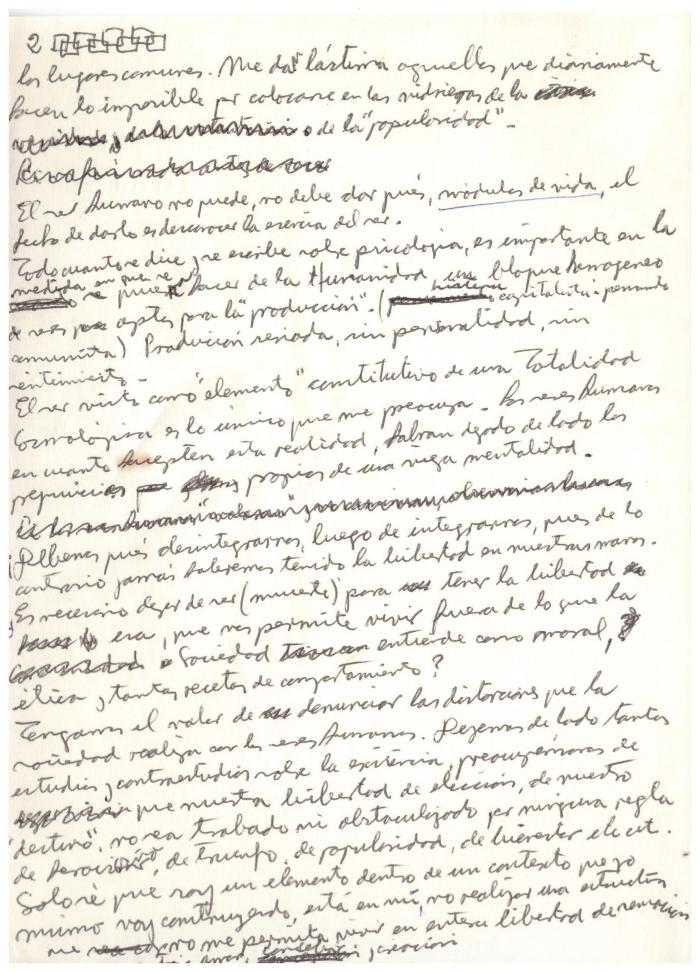 2
los lugares comunes. Me da lástima aquellos que diariamente
hacen lo imposible por colocarse en las vidrieras de la
o de la "popularidad".-
El ser humano no puede, no debe dar pués, módulos de vida, el
hecho de darlo es desconocer la esencia del ser.
Todo cuanto se dice y se escribe sobre psicologia, es importante en la
medida en que se hacer de la Humanidad un bloque homogeneo
de seres aptos para la "producción". ( capitalista -
comunista) Producción seriada, sin personalidad, sin
sentimiento -
El ser visto como "elemento" constitutivo de una Totalidad
Cosmológica es lo único que me preocupa - Los seres humanos
en cuanto acepten esta realidad, habran dejado de lado los
prejuicios propios de una vieja mentalidad.-
¡Debemos pués desintegrarnos, luego de integrarnos, pues de lo
contrario jamás sabremos tenido la libertad en nuestras manos.
Es necesario dejar de ser (muerte) para tener la libertad
esa, que nos permite vivir fuera de lo que la
Sociedad entiende como moral,
ética y tantas recetas de comportamiento?
Tengamos el valor de denunciar las distorciones que la
sociedad realiza con los seres humanos. Dejemos de lado tantos
estudios y contraestudios sobre la existencia, preocupémonos de
que nuestra libertad de elección, de nuestro
"destino", no sea trabado ni obstaculizado por ninguna regla
de heroismo, de triunfo, de popularidad, de bienestar etc. etc.
Solo sé que soy un elemento dentro de un contexto que yo
mismo voy construyendo, está en mí, no realizar una estructura
que no me permita vivir en entera libertad de
amor, y creación